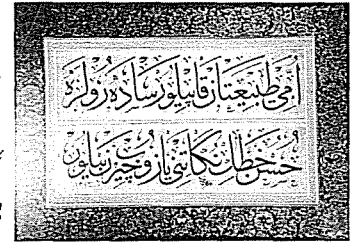 امی طبیعتان قاپیلور ساده رولره
حسن خطك نكاتنی یازوب چیزن بیلور